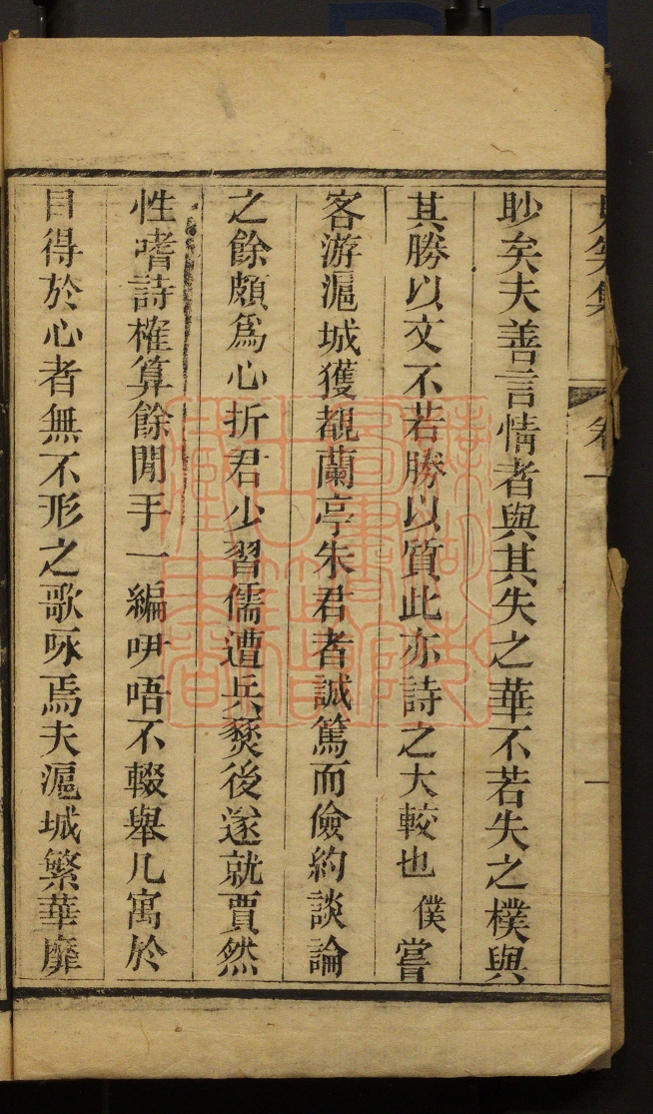 眇矣夫善言情者與其失之華不若失之樸與
其勝以文不若勝以質此亦詩之大較也僕嘗
客游滬城獲覩蘭亭朱君者誠篤而儉約談論
之餘頗爲心折君少習儒遭兵燹後遂就賈然
性嗜詩榷算餘閒手一編咿唔不輟舉凡寓於
目得於心者無不形之歌咏焉夫滬城繁華靡